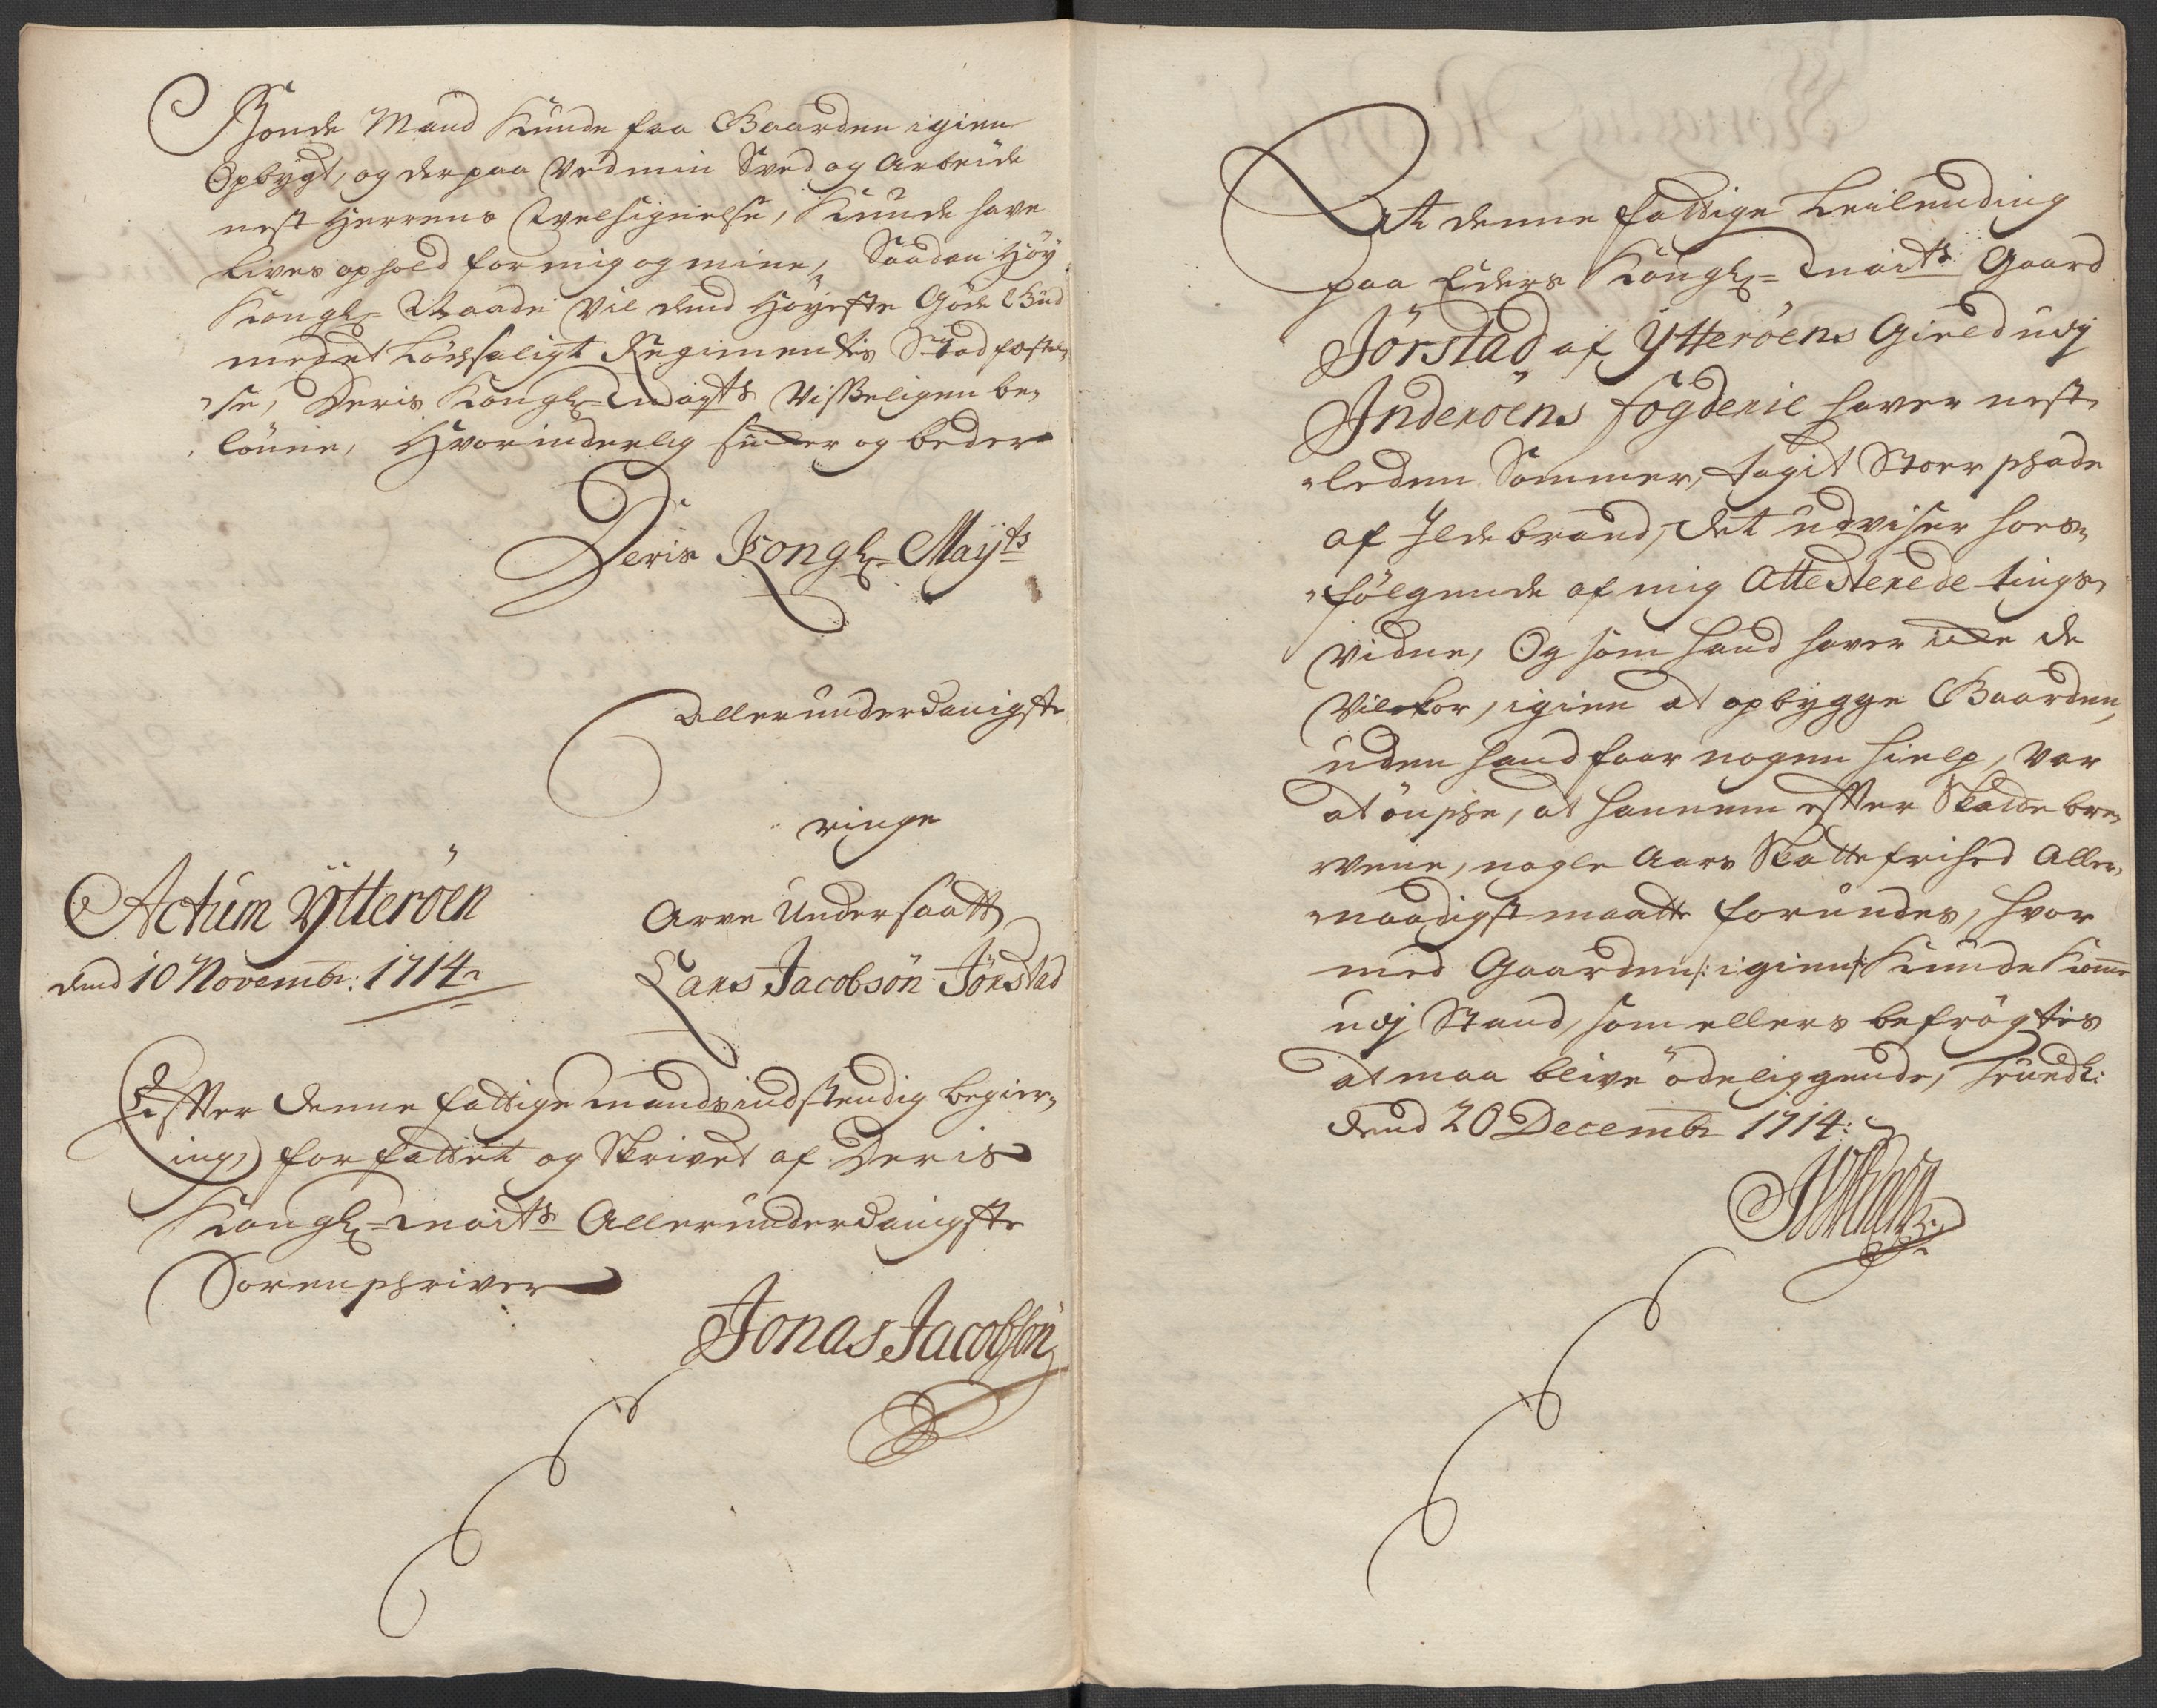 Bonde Mand Kunde faa Gaarden igien
Opbygt, og der paa Ved min Sved og Arbeide
nest Herrens Velsignelse, Kunde have
Lives ophold for mig og mine, Saadan Høy
Kongl: Naade Vil dend Høyeste Gode Gud
med et Lÿcksaligt Regimentes Stadfæstel„
„se, Deris Kongl: Mayts Visseligen be„
lønne, Hvor inderlig sucker og beder
Deris Kongl: Mayts
Allerunderdanigste
ringe
Actum Ÿtterøen
dend 10 Novembr: 1714
Arve Undersaatt
Lars Jacobsön Jørstad
Effter denne fattige mands indstendig begier„
ing, forfattet og Skrivet af Deris
Kongl: Maits Allerunderdanigste
Sorenschriver
Jonas Jacobsön
At denne fattige Leilending
paa Eders Kongl: Maits Gaard
Jörstad af Ytteröens Gield udj
Inderöens fogderie haver nest„
„leden Sommer, tagit Stoer schade
af Ildebrand, det udviser hoes„
„følgende af mig Attesterede tings„
Vidne, Og som hand haver icke de
Vilckor, igien at opbygge Gaarden,
uden hand faar nogen hielp, Var
at ønsche, at hannem effter Skadde bre„
vene, nogle Aars Skattefrihed Aller„
naadigst maatte forundes, hvor
med Gaarden /: igien :/ Kunde Komme
udj Stand, som ellers befrögtes
at maa blive ödeliggende, Trundh:
dend 20 Decembr 1714: